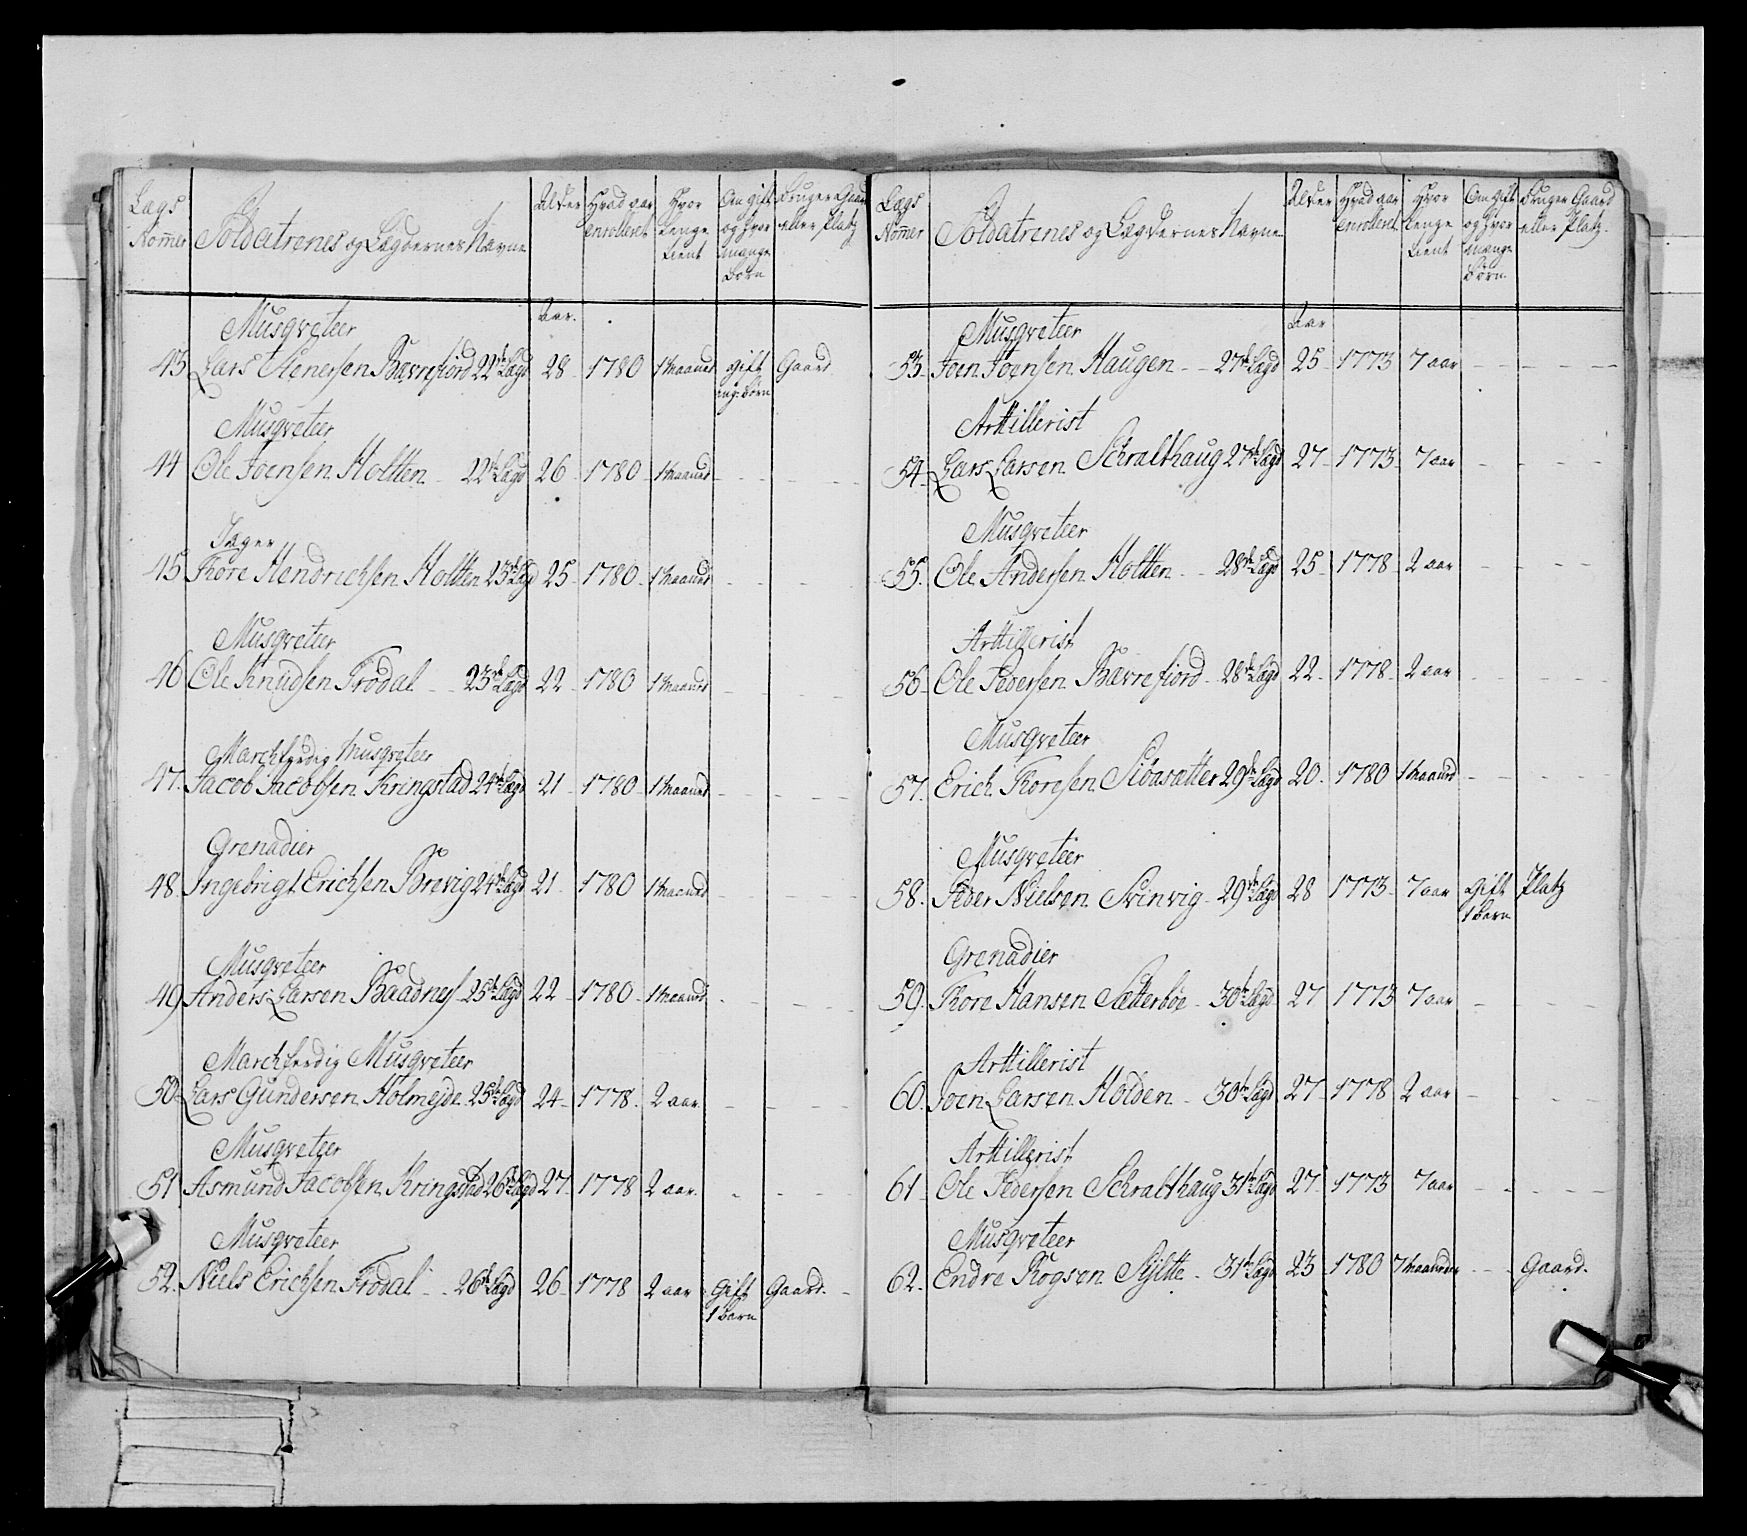 Lægs Nommer | Soldaternes og Lægdernes Navne | Alder | Hvad aar enrolleret | Hvor lenge tient | Om gift og hvor mange børn | Bruger Gaard eller Platz
Musqveteer | Aar.
43 Lars Stenersen Bævrefiord 22de Lægd 28 1780 1 Maaned gift ing: børn Gaard
Musqveteer
44 Ole Joensen Holtten 22de Lægd 26 1780 1 Maaned
Jæger
45 Thore Hendrichsen Holtten 23de Lægd 25 1780 1 Maaned
Musqveteer
46 Ole Knudsen Frodal 23de Lægd 22 1780 1 Maaned
Marchferdig Musqveteer
47. Jacob Jacobsen Kringstad 24de Lægd 21 1780 1 Maaned
Grenadier
48. Ingebrigt Erichsen Brevig 24de Lægd 21 1780 1 Maaned
Musqveteer
49 Anders Larsen Baadnes 25de Lægd 22 1780 1 Maaned
Marchferdig Musqveteer
50 Lars Gundersen Holmejde 25de Lægd 24 1778. 2 aar
Musqveteer
51 Asmund Jacobsen Kringstad 26de Lægd 27 1778 2 aar.
Musqveteer
52. Niels Erichsen Frodal 26de Lægd 26 1778 2 aar Gift 1 barn Gaard.
Lægs Nommer | Soldaternes og Lægdernes Navne | Alder | Hvad aar enrolleret | Hvor lenge tient | Om gift og hvor mange børn | Bruger Gaard eller Platz.
Musqveteer | Aar
53. Joen Joensen Haugen 27de Lægd 25 1773 7 aar
Arttillerist
54 Lars Larsen Schralthaug 27de Lægd 27 1773 7 aar
Musqveteer
55. Ole Andersen Holtten 28de Lægd 25 1778 2 aar
Arttillerist
56 Ole Pedersen Bævrefiord 28de Lægd 22 1778 2 aar
Musqveteer
57. Erich Thoresen Siöasætter 29de Lægd 20. 1780 1 Maaned
Musqveteer
58. Peder Nielsen Svinvig 29de Lægd 28 1773 7 aar Gift 1 barn Platz
Grenadier
59. Thore Hansen Sætterbøe 30te Lægd 27 1773 7 aar
Arttillerist
60. Joen Larsen Holden 30te Lægd 27 1778 2 aar
Arttillerist
61 Ole Pedersen Schralthaug 31te Lægd 27 1773 7 aar
Musqveteer
62. Endre Rogsen 31te Lægd 23 1780 7 Maaneder Gaard.